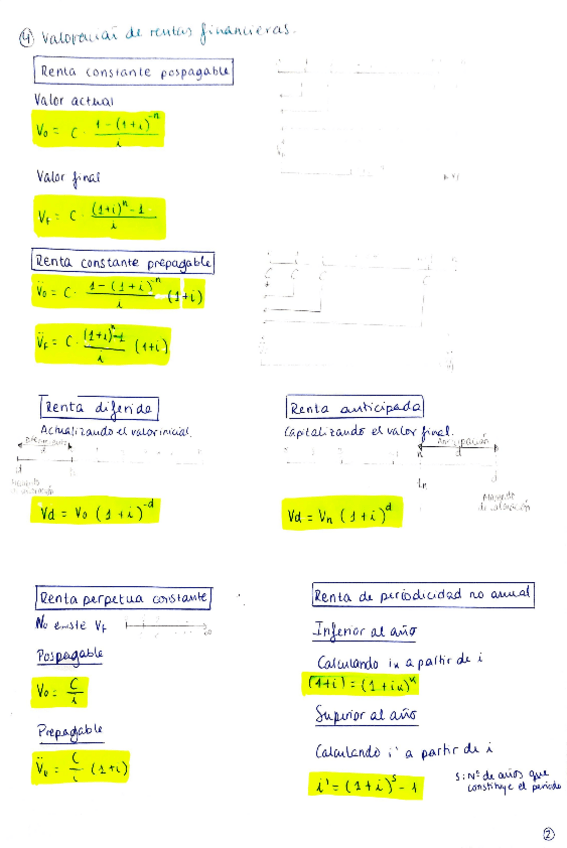 ④ Valoración de rentas financieras.
Renta constante pospagable
Valor actual
V₀ = C · (1-(1+i)⁻ⁿ)/i
Valor final
V_f = C · ((1+i)ⁿ-1)/i
Renta constante prepagable
V̈₀ = C · (1-(1+i)⁻ⁿ)/i (1+i)
V̈_f = C · ((1+i)ⁿ-1)/i (1+i)
Renta diferida
Actualizando el valor inicial.
d
d
Vd = V₀ (1+i)⁻ᵈ
Renta anticipada
Capitalizando el valor final.
Anticipación
n
d
Momento
de valoración
Vd = Vₙ (1+i)ᵈ
Renta perpetua constante
No existe V_f
∞
Pospagable
V₀ = C/i
Prepagable
V̈₀ = C/i (1+i)
Renta de periodicidad no anual
Inferior al año
Calculando iₖ a partir de i
(1+i) = (1+iₖ)ᵏ
Superior al año
Calculando i' a partir de i
i' = (1+i)ˢ - 1
s: Nº de años que
constituye el periodo
②